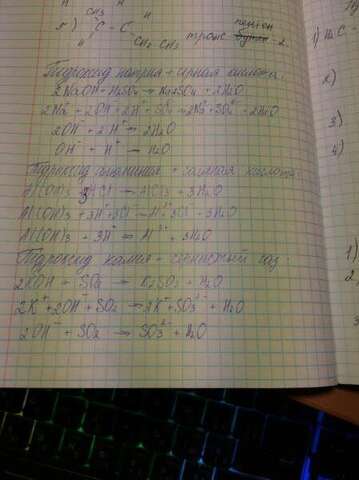 H H
5) CH3 H
C – C
H CH2 CH3
транс пентен
бутен -2.
Гидроксид натрия + серная кислота.
2NaOH + H2SO4 → Na2SO4 + 2H2O
2Na⁺ + 2OH⁻ + 2H⁺ + SO4²⁻ → 2Na⁺ + SO4²⁻ + 2H2O
2OH⁻ + 2H⁺ → 2H2O
OH⁻ + H⁺ → H2O
Гидроксид алюминия + соляная кислота.
Al(OH)3 + 3HCl → AlCl3 + 3H2O
Al(OH)3 + 3H⁺ + 3Cl⁻ → Al³⁺ + 3Cl⁻ + 3H2O
Al(OH)3 + 3H⁺ → Al³⁺ + 3H2O
Гидроксид калия + сернистый газ.
2KOH + SO2 → K2SO3 + H2O
2K⁺ + 2OH⁻ + SO2 → 2K⁺ + SO3²⁻ + H2O
2OH⁻ + SO2 → SO3²⁻ + H2O
1) H3C –
2)
3)
4)
1)
2